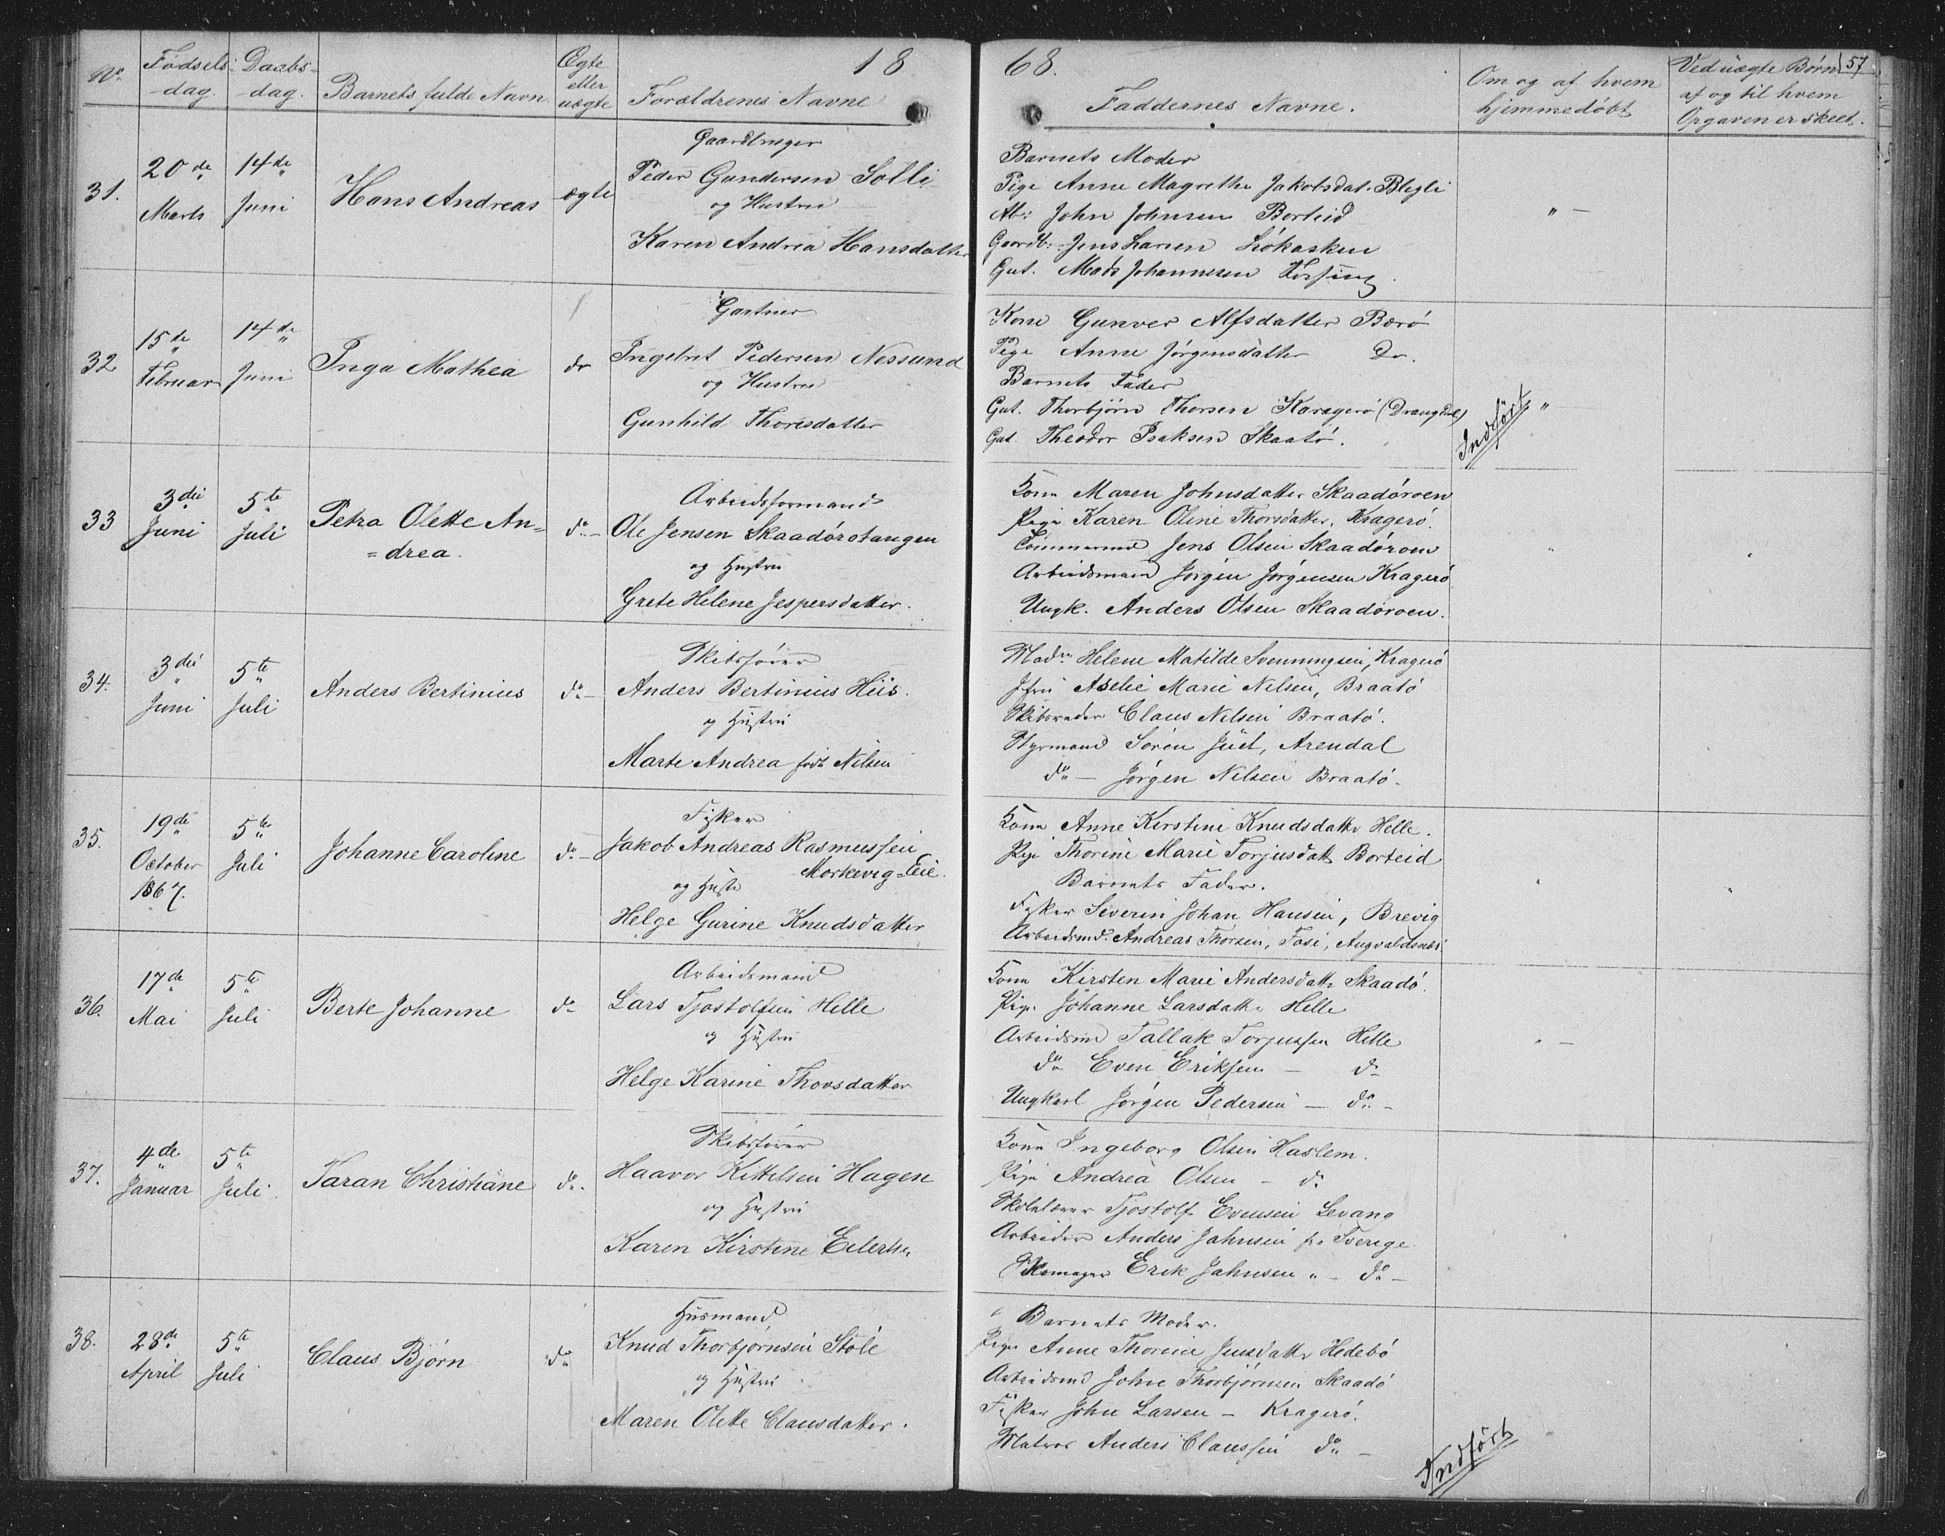 18 68. 57
No. Fødsels-dag. Daabs-dag. Barnets fulde Navn Egte eller uægte Forældrenes Navne Faddernes Navne. Om og af hvem hjemmedøbt Ved uægte Børn af og til hvem Opgaven er skeet.
31. 20de Marts 14de Juni Hans Andreas ægte
Gaardbruger
Peder Gundersen Solli
og Hustru
Karen Andrea Hansdatter
Barnets Moder
Pige Anne Magrethe Jakobsdat.
John Johnsen Borteid
Gaardb: Jens Larsen
Gut. Mads Johannesen
32 15de Februar 14de Juni Inga Mathea do
Gartner
Ingebret Pedersen Nessund
og Hustru
Gunhild Thorisdatter
Kone Gunver Alfsdatter Berø
Pige Anne Jørgensdatter Do.
Barnets Fader
Gut. Thorbjørn Thorsen Kragerø (Drangdal)
Gut Theodor Isaksen Skaatø.
Indført
33 3die Juni 5te Juli Petra Olette An=
=drea. do.-
Arbeidsformand
Ole Jensen Skaadørotangen
og Hustru
Grete Helene Jespersdatter.
Kone Maren Johnsdatter Skaadøroen
Pige Karen Oline Thorsdatter, Kragerø.
Tømmermd Jens Olsen Skaadøroen
Arbeidsmand Jørgen Jørgensen Kragerø
Ungk. Anders Olsen Skaadøroen.
34. 3die Juni 5te Juli Anders Bertinius do-
Skibsfører
Anders Bertinius Hiis.
og Hustru
Marte Andrea født Nilsen
Madm Helene Matilde Svenningsen, Kragerø
Jfru Aselie Marie Nilsen, Braatø
Skibsreder Claus Nilsen Braatø.
Styrmand Søren Juel, Arendal
do - Jørgen Nilsen Braatø.
35. 19de October 1867. 5te Juli Johanne Caroline do.-
Fisker
Jakob Andreas Rasmussen
Morkevig=Eie.
og Hust.
Helge Gurine Knudsdatter
Kone Anne Kirstine Knudsdatter Helle.
Pige Thorine Marie Torjusdatt Borteid
Barnets Fader.
Fisker Severin Johan Hansen, Brevig
Arbeidsmd. Andreas Thorsen, Fosi, Augvaldsnæs
36. 17de Mai 5te Juli Berte Johanne do
Arbeidsmand
Lars Tjostolfsen Helle
og Hustru
Helge Karine Thorsdatter
Kone Kirsten Marie Andersdatter Skaadø.
Pige Johanne Larsdatter Helle
Arbeidsmd Tallak Torjussen Helle
do Even Eriksen - do
Ungkarl Jørgen Pedersen - do.-
37. 4de Januar 5te Juli. Taran Christiane do.
Skibsfører
Haavor Kittelsen Hagen
og Hustru
Karen Kirstine Eilertsen
Kone Ingeborg Olsen Haslem.
Pige Andrea Olsen - do
Skolelærer Tjostolf Evensen Levang
Arbeider Anders Jahnsen fra Sverige.
Skomager Erik Jahnsen " - do -
38. 28de April 5te Juli Claus Bjørn do
Husmand
Knud Thorbjørnsen Støle
og Hustru
Maren Olette Clausdatter.
Barnets Moder.
Pige Anne Thorine Jensdatter Hedebø
Arbeidsmd John Thorbjørnsen Skaadø
Fisker John Larsen - Kragerø.
Matros Anders Claussen do -
Indført